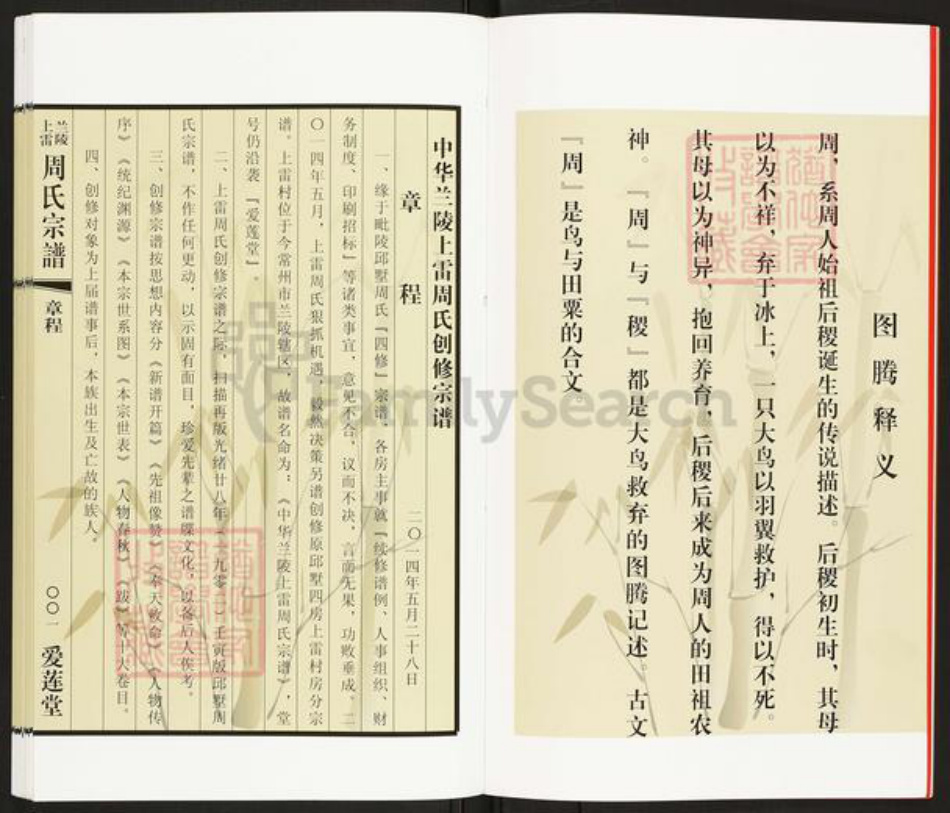 图腾释义
周，系周人始祖后稷诞生的传说描述。后稷初生时，其母
以为不祥，弃于冰上，一只大鸟以羽翼救护，得以不死。
其母以为神异，抱回养育，后稷后来成为周人的田祖农
神。『周』与『稷』都是大鸟救弃的图腾记述。古文
『周』是鸟与田粟的合文。
中华兰陵上雷周氏创修宗谱
章程
二〇一四年五月二十八日
一、缘于毗陵邱墅周氏『四修』宗谱，各房主事就『续修谱例、人事组织、财
务制度、印刷招标』等诸类事宜，意见不合，议而不决，言而无果，功败垂成。二
〇一四年五月，上雷周氏狠抓机遇，毅然决策另谱创修原邱墅四房上雷村房分宗
谱。上雷村位于今常州市兰陵辖区，故谱名命为：《中华兰陵上雷周氏宗谱》，堂
号仍沿袭『爱莲堂』。
二、上雷周氏创修宗谱之际，扫描再版光绪廿八年（一九零二）壬寅版邱墅周
氏宗谱，不作任何更动，以示固有面目，珍爱先辈之谱牒文化，以备后人俟考。
三、创修宗谱按思想内容分《新谱开篇》《先祖像赞》《奉天敕命》《人物传
序》《统纪渊源》《本宗世系图》《本宗世表》《人物春秋》《跋》等十大卷目。
四、创修对象为上届谱事后，本族出生及亡故的族人。
兰陵
上雷
周氏宗譜
章程
〇〇一
爱莲堂
FamilySearch